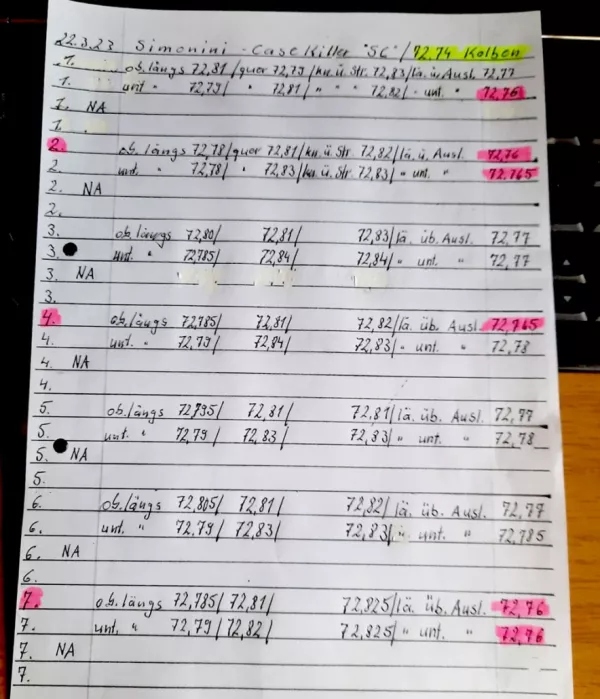 22.3.23 Simonini - Case Killer "SC" / 72,74 Kolben
1. ob. längs 72,81 / quer 72,79 / kn. ü. Str. 72,83 / lä. ü. Ausl. 72,77
1. unt " 72,79 / " 72,81 / " " " 72,82 / " unt. " 72,76
1. NA
1.
2. ob. längs 72,78 / quer 72,81 / kn. ü. Str 72,82 / lä. ü. Ausl. 72,76
2. unt. " 72,78 / " 72,83 / kn. ü. Str. 72,83 / " unt. " 72,765
2. NA
2.
3. ob. längs 72,80 / 72,81 / 72,83 / lä. üb. Ausl. 72,77
3. unt. " 72,785 / 72,84 / 72,84 / " unt. " 72,77
3. NA
3.
4. ob. längs 72,785 / 72,81 / 72,82 / lä. üb. Ausl. 72,765
4. unt. " 72,79 / 72,84 / 72,83 / " unt. " 72,78
4. NA
4.
5. ob. längs 72,795 / 72,81 / 72,81 / lä. üb. Ausl. 72,77
5. unt. " 72,79 / 72,83 / 72,83 / " unt. " 72,78
5. NA
5.
6. ob. längs 72,805 / 72,81 / 72,82 / lä. üb. Ausl. 72,77
6. unt. " 72,79 / 72,83 / 72,83 / " unt. " 72,785
6. NA
6.
7. ob. längs 72,785 / 72,81 / 72,825 / lä. üb. Ausl. 72,76
7. unt. " 72,79 / 72,82 / 72,825 / " unt. " 72,76
7. NA
7.